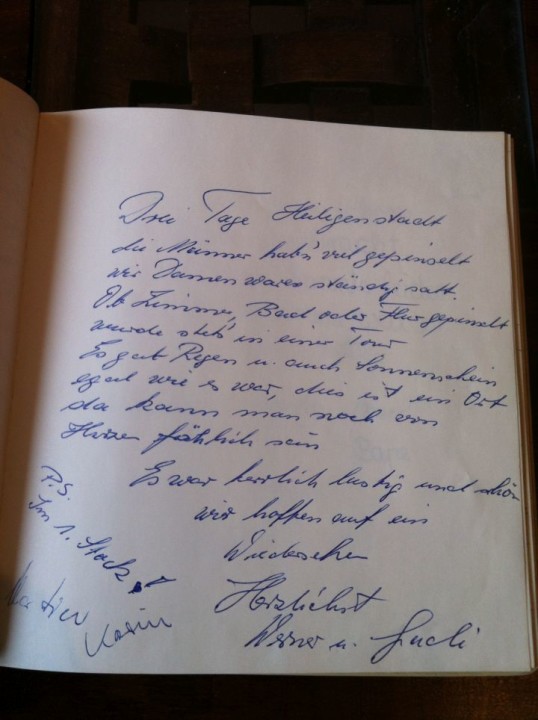 Drei Tage Heiligenstadt
die Männer hab's viel gepinselt
wir Damen waren ständig satt.
Ob Zimmer, Bad oder Flur gepinselt
wurde stets in einer Tour
Es gab Regen u. auch Sonnenschein
egal wie es war, dies ist ein Ort
da kann man noch von
Herzen fröhlich sein
Es war herrlich lustig und schön
wir hoffen auf ein
Wiedersehen
Herzlichst
Werner u.
P.S.
Im 1. Stock
Karin